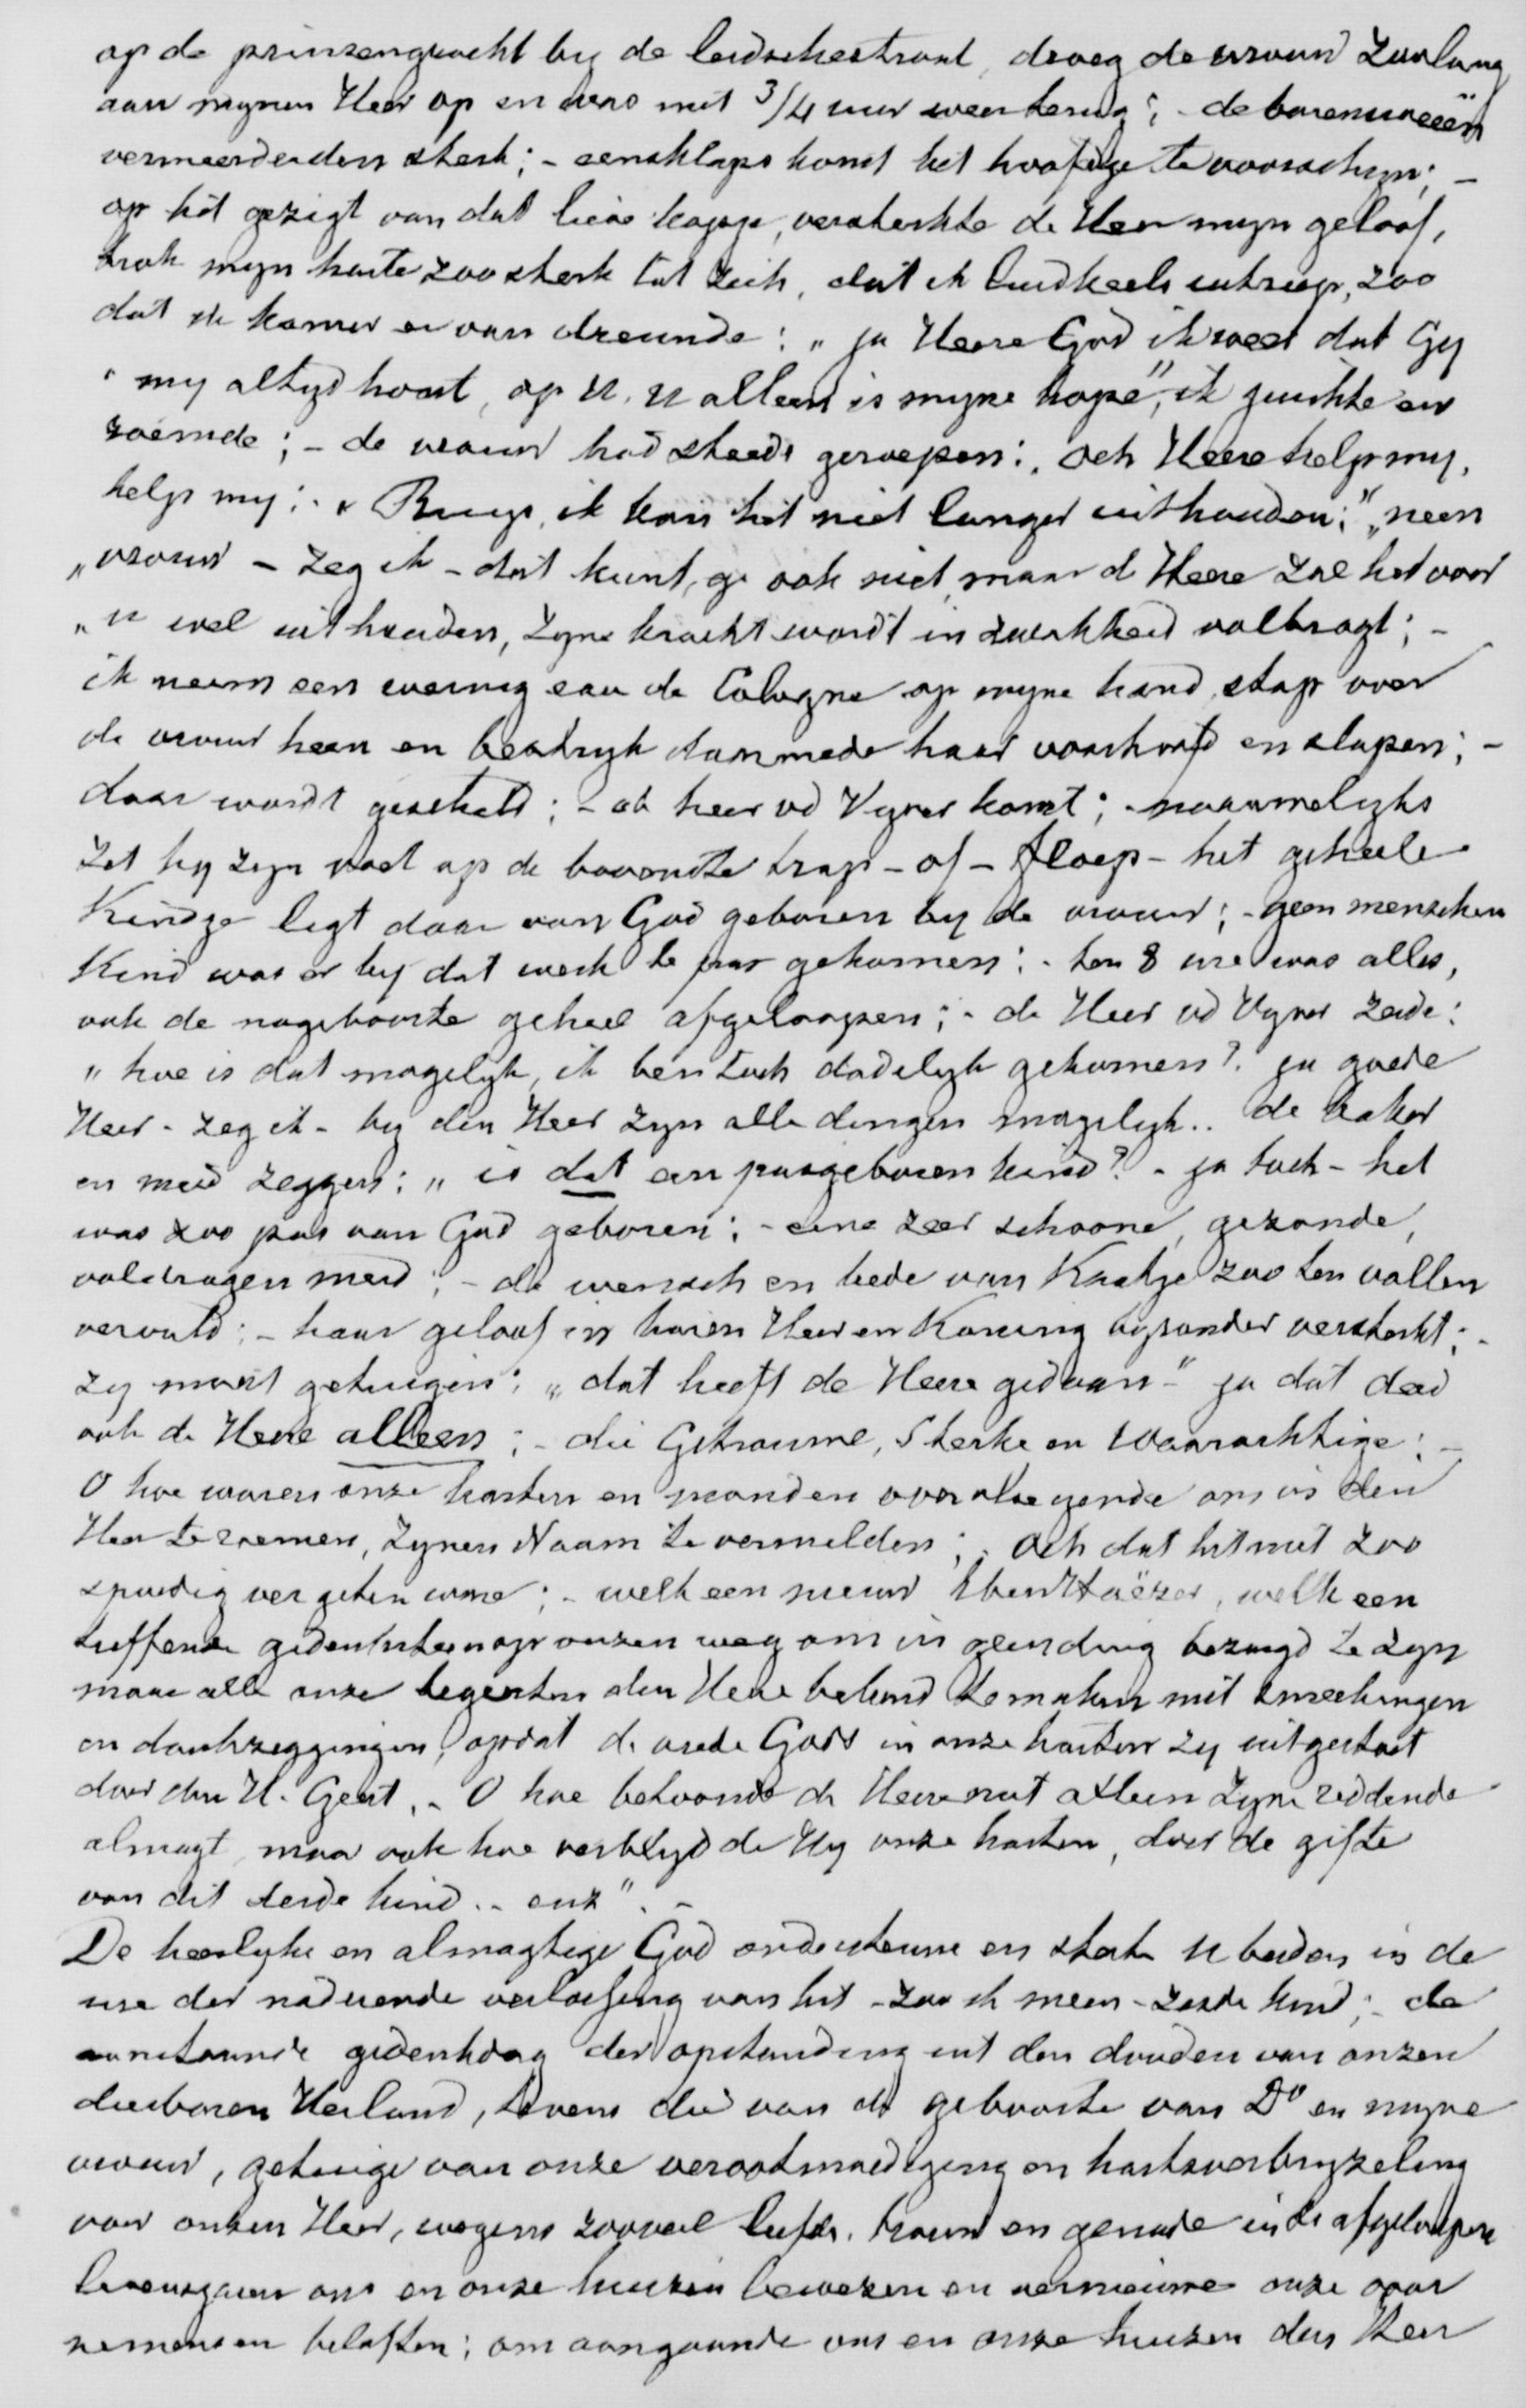 op de prinsengracht by de leidschestraat, droeg de vrouw zoolang
aan mynen Heer op en was met 3/4 uur weer terug; - de barensweeën
vermeerderden sterk; - eensklaps komt het hoofdje te voorschyn; -
op het gezigt van dat lieve kopje, versterkte de Heer myn geloof,
trok myn harte zoo sterk tot zich, dat ik luidkeels uitriep, zoo
dat de kamer er van dreunde: „ja Heere God ik weet dat Gy
„my altyd hoort, op U, U alleen is myne hope", ik juichte en
roemde; - de vrouw had steeds geroepen: „och Heere help my,
help my; „Ruys, ik kan het niet langer uithouden;" „neen
„vrouw - zeg ik - dat kunt ge ook niet, maar de Heere zal het voor
„u wel uithouden, zyne kracht wordt in zwakheid volbragt; -
ik neem een weinig eau de Cologne op myne hand, stap over
de vrouw heen en bestryk daarmede haar voorhoofd en slapen; -
daar wordt gescheld; - de heer vd Vyver komt; - naauwelyks
zet hy zyn voet op de bovenste trap - of - floep - het geheele
Kindje ligt daar van God geboren by de vrouw; - geen menschen
Kind was er by dat werk te pas gekomen; - ten 8 ure was alles,
ook de nageboorte geheel afgeloopen; - de Heer vd Vyver zeide:
„hoe is dat mogelyk, ik ben toch dadelyk gekomen? ja goede
Heer - zeg ik - by den Heer zyn alle dingen mogelyk.. de baker
en meid zeggen: „is dat een pasgeboren kind? - ja toch - het
was zoo pas van God geboren; - eene zeer schoone, gezonde,
voldragen meid; - de wensch en bede van Kaatje zoo ten vollen
vervuld; - haar geloof in haren Heer en Koning byzonder versterkt; -
zy moest getuigen; „dat heeft de Heere gedaan" ja dat deed
ook de Heere alleen; - die Getrouwe, Sterke en Waarachtige; -
O hoe waren onze harten en monden overvloeyende om in den
Heer te roemen, Zynen Naam te vermelden; - och dat het niet zoo
spoedig vergeten ware; - welk een nieuw EbenHaëzer, welk een
treffende gedenksteen op onzen weg om in geen ding bezorgd te zyn
maar alle onze begeerten den Heere bekend te maken met smeekingen
en dankzeggingen, opdat de vrede Gods in onze harten zy uitgestort
door den H. Geest. - O hoe betoonde de Heere niet alleen Zyne reddende
almagt, maar ook hoe verblydde Hy onze harten, door de gifte
van dit derde kind .. enz". -
De heerlyke en almagtige God ondersteune en sterke U beiden in de
ure der naderende verlossing van het - zoo ik meen - zesde kind; - de
aanstaande gedenkdag der opstanding uit den dooden van onzen
dierbaren Heiland, tevens die van de geboorte van Do en myne
vrouw, getuige van onze verootmoediging en hartsverbryzeling
voor onzen Heer, wegens zooveel liefde, trouw en genade in de afgeloopen
levensjaren ons en onze huizen bewezen en vernieuwe onze voor
nemens en beloften; om aangaande ons en onze huizen den Heer